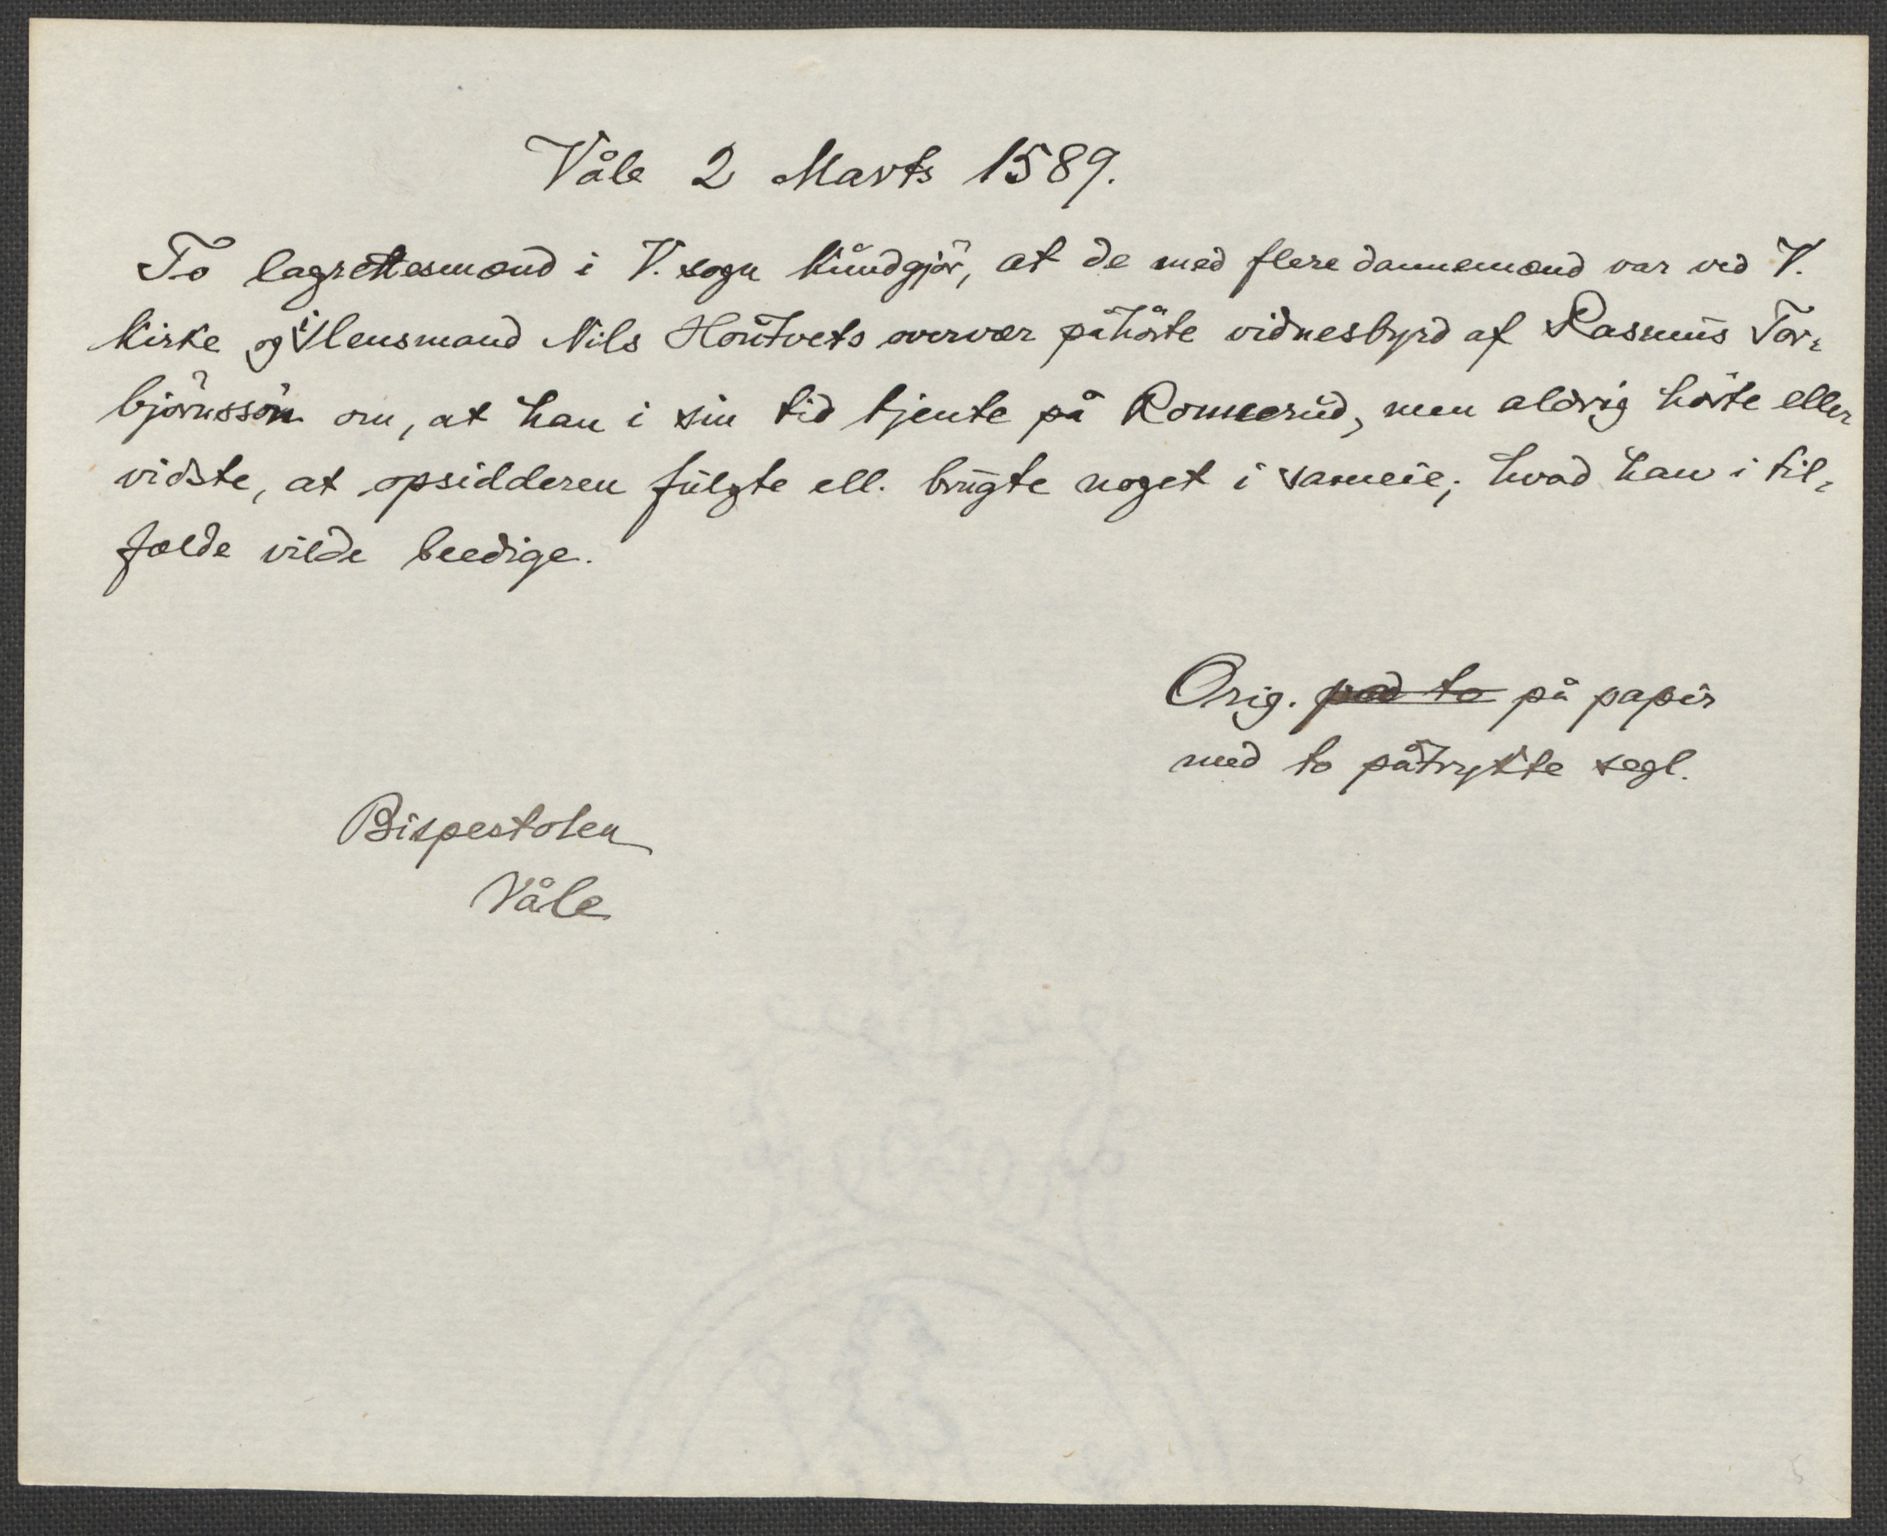 Våle 2 Marts 1589.
To lagrettesmænd i V. sogn kundgjör, at de med flere dannemænd var ved V.
kirke og i lensmand Nils Houtvets overvær påhörte vidnesbyrd af Rasmus Tor-
björnssön om, at han i sin tid tjente på Rommerud, men aldrig hörte eller
vidste, at opsidderen fulgte ell. brugte noget i sameie; hvad han i til-
fælde vilde beedige.
Orig. på papir
med to påtrykte segl.
Bispestolen
Våle